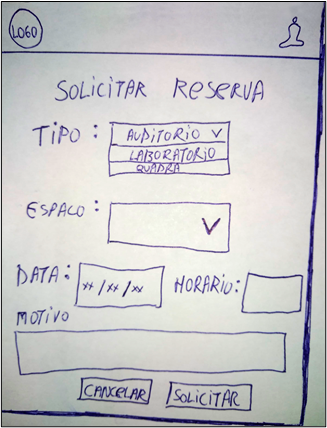 LOGO
SOLICITAR RESERVA
TIPO: AUDITORIO
LABORATORIO
QUADRA
ESPAÇO:
DATA: xx/xx/xx HORARIO:
MOTIVO
CANCELAR SOLICITAR